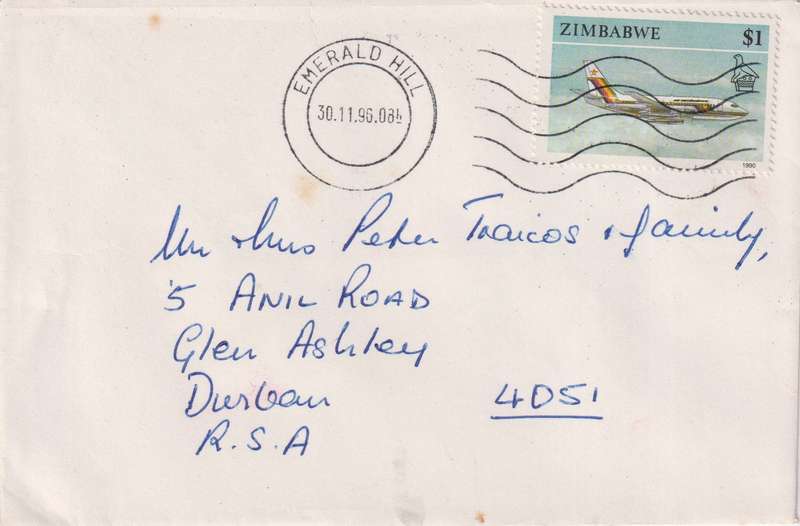 ZIMBABWE $1
EMERALD HILL
30.11.96.08½
1990
Mr & Mrs Peter Traicos & family,
5 ANIL ROAD
Glen Ashley
Durban 4051
R.S.A